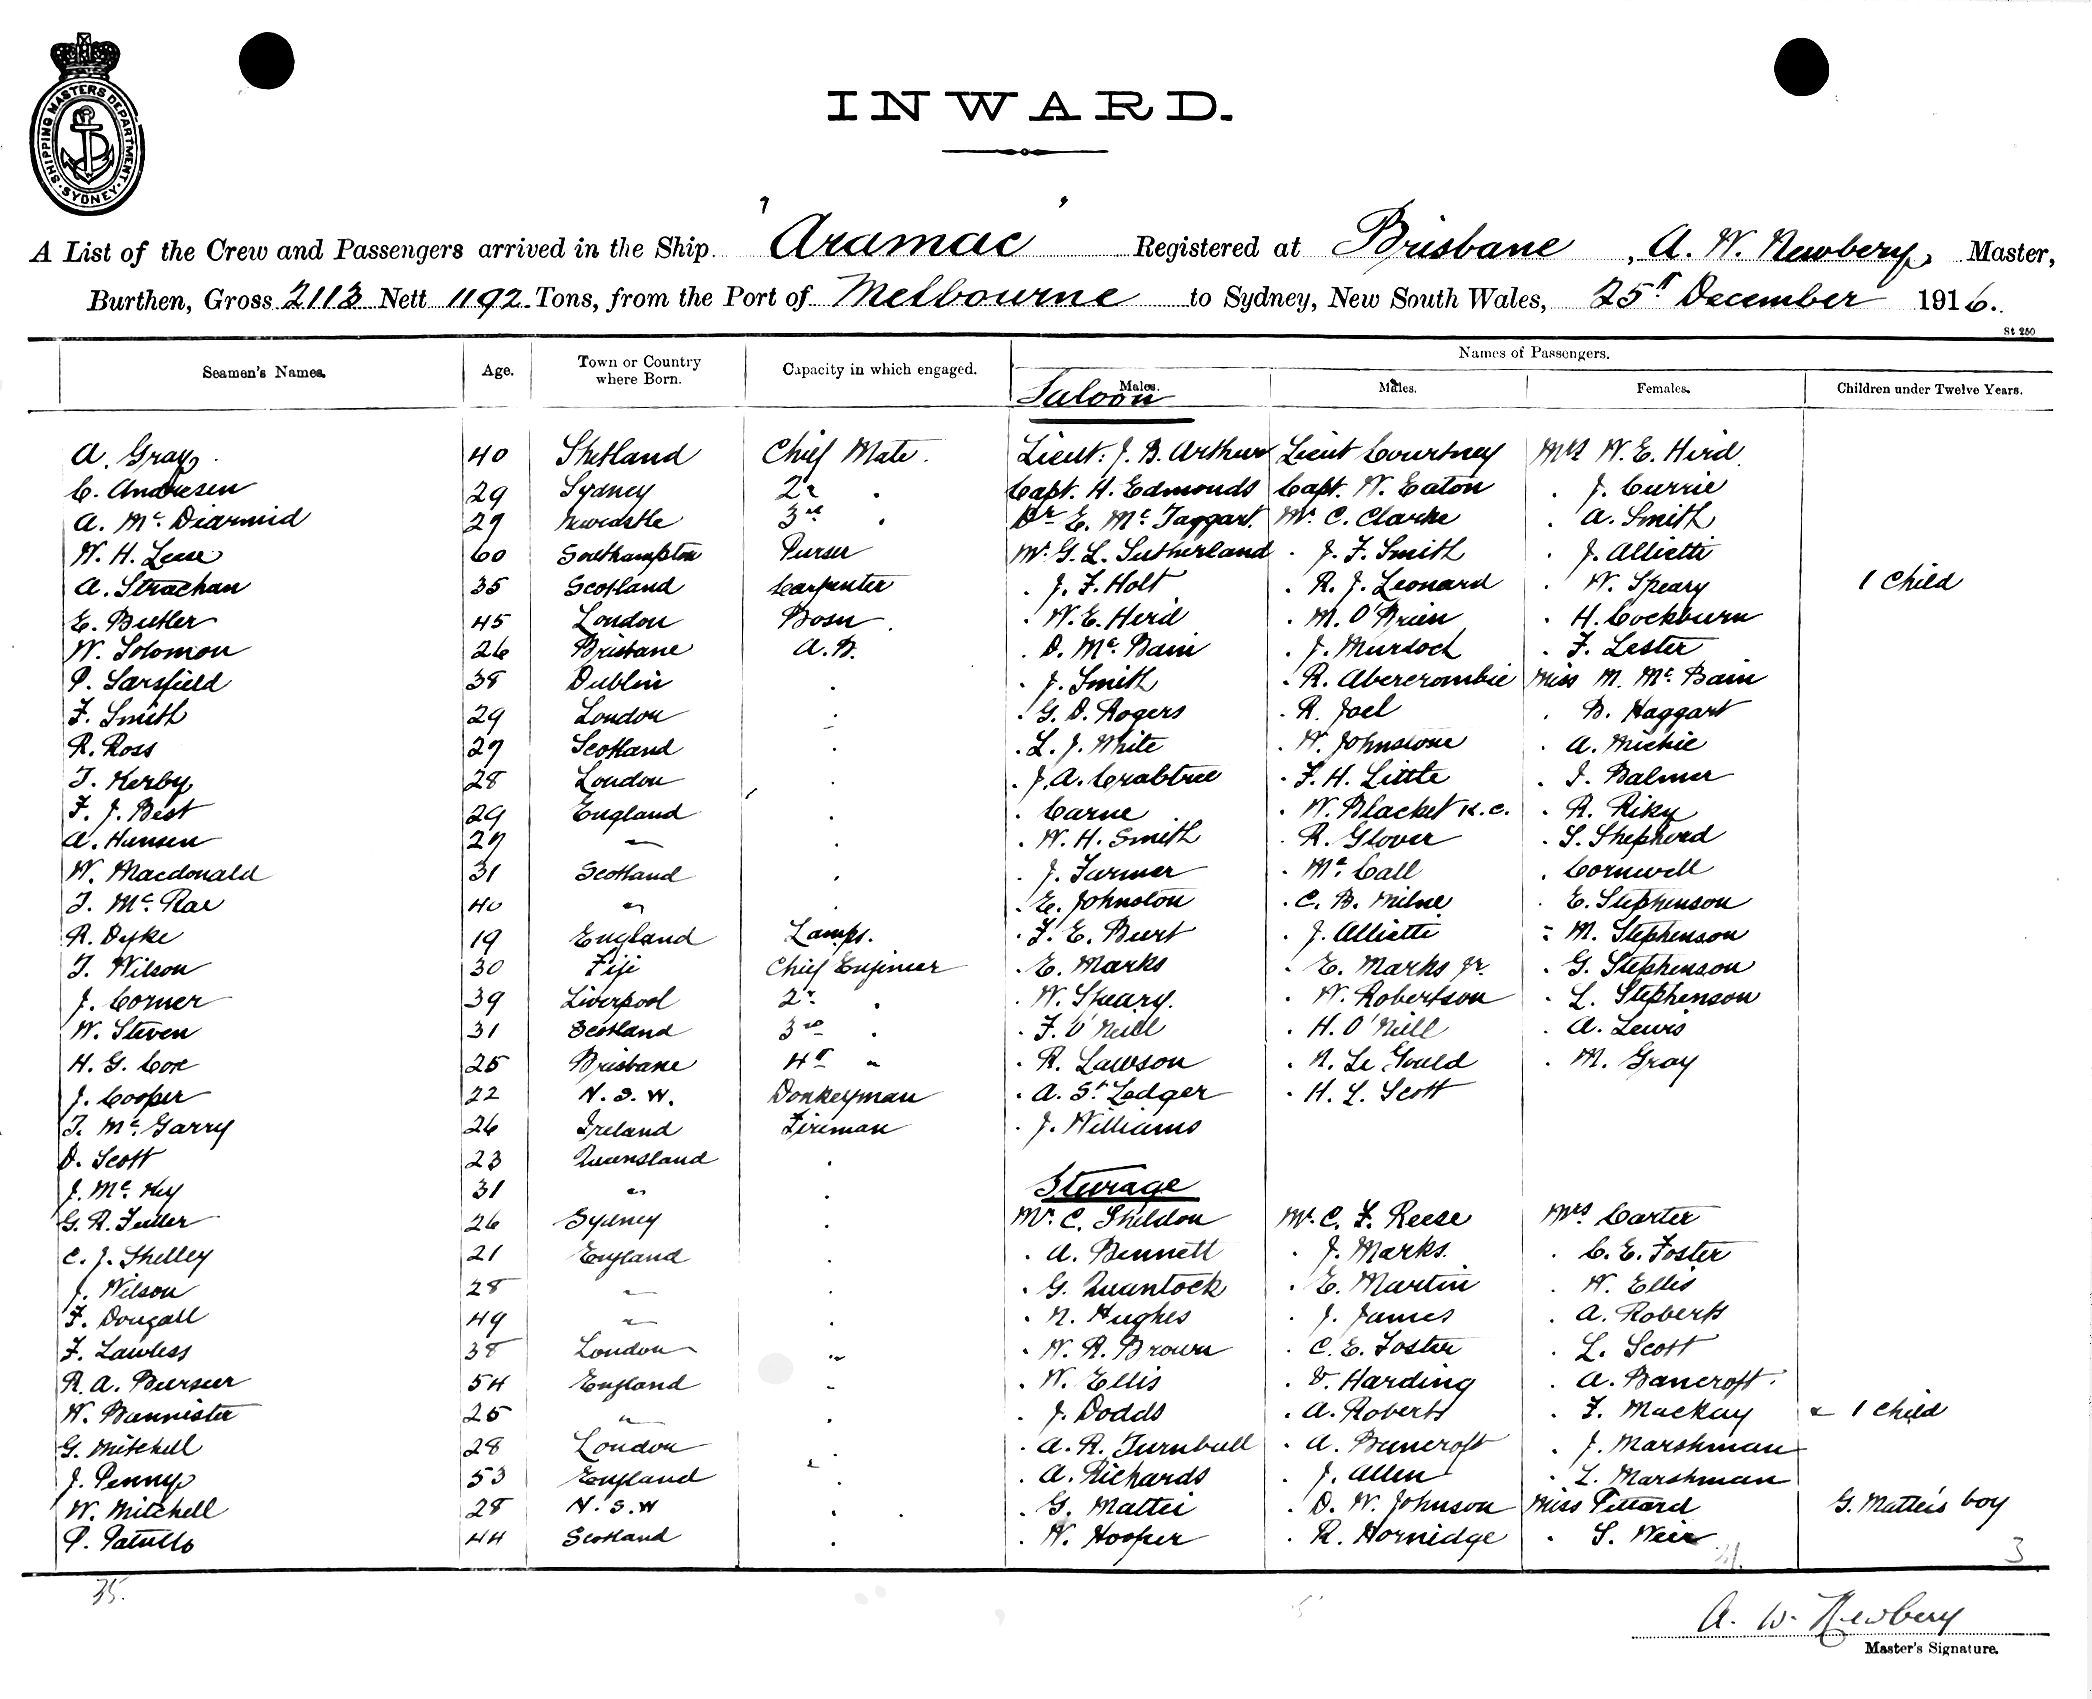 SHIPPING MASTERS DEPARTMENT · SYDNEY ·
INWARD.
A List of the Crew and Passengers arrived in the Ship "Aramac" Registered at Brisbane, A. W. Newbery, Master,
Burthen, Gross 2113 Nett 1192 Tons, from the Port of Melbourne to Sydney, New South Wales, 25th December 1916.
St 250
Seamen's Names. Age. Town or Country where Born. Capacity in which engaged. Names of Passengers.
Saloon Males. Males. Females. Children under Twelve Years.
A. Gray 40 Shetland Chief Mate. Lieut: J. B. Arthur Lieut Courtney Mrs W. E. Hird
C. Andresen 29 Sydney 2nd . Capt. H. Edmonds Capt. W. Eaton . J. Currie
A. Mc Diarmid 27 Newcastle 3rd . Dr E. Mc Taggart. Mr C. Clarke . A. Smith
W. H. Leese 60 Southampton Purser Mr. G. L. Sutherland . J. F. Smith . J. Allietti
A. Strachan 35 Scotland Carpenter . J. F. Holt . R. J. Leonard . W. Speary 1 Child
E. Butler 45 London Bosn . W. E. Herd . M. O'Brien . H. Cockburn
W. Solomon 26 Brisbane A.B. . D. Mc Bain . J. Murdoch . F. Lester
P. Sarsfield 38 Dublin . . J. Smith . R. Abercrombie Miss M. Mc Bain
F. Smith 29 London . . G. D. Rogers . R. Joel . B. Haggart
R. Ross 27 Scotland . . L. J. White . W. Johnstone . A. Michie
T. Kerby 28 London . . J. A. Crabtree . F. H. Little . J. Balmer
F. J. Best 29 England . . Carne . W. Blacket K.C. . R. Riky
A. Hansen 27 " . . W. H. Smith . R. Glover . S. Shepherd
W. Macdonald 31 Scotland . . J. Farmer . Mc Call . Cornwell
J. Mc Rae 40 " . . E. Johnston . C. B. Milne . E. Stephenson
R. Dyke 19 England Lamps. . F. E. Burt . J. Allietti . M. Stephenson
T. Wilson 30 Fiji Chief Engineer . E. Marks . E. Marks Jr. . G. Stephenson
J. Corner 39 Liverpool 2nd . . W. Speary. . W. Robertson . L. Stephenson
W. Steven 31 Scotland 3rd . . F. O'Neill . H. O'Niell . A. Lewis
H. G. Cox 25 Brisbane 4th " . R. Lawson . N. Le Gould . M. Gray
J. Cooper 22 N.S.W. Donkeyman . A. St Ledger . H. L. Scott
T. Mc Garry 26 Ireland Fireman . J. Williams
D. Scott 23 Queensland .
J. Mc Key 31 " . Steerage
G. R. Fuller 26 Sydney . Mr. C. Sheldon Mr. C. F. Reese Mrs Carter
C. J. Shelley 21 England . . A. Bennett . J. Marks. . C. E. Foster
J. Wilson 28 " . . G. Quantock . E. Martin . W. Ellis
F. Dougall 49 " . . N. Hughes . J. James . A. Roberts
F. Lawless 38 London " . W. R. Brown . C. E. Foster . L. Scott
R. A. Purser 54 England . . W. Ellis . V. Harding . A. Bancroft.
W. Bannister 25 " . . J. Dodds . A. Roberts . F. Mackay & 1 Child
G. Mitchell 28 London . A. R. Turnbull . A. Bancroft . J. Marshman
J. Penny 53 England . . A. Richards . J. Allen . L. Marshman
W. Mitchell 28 N.S.W . . G. Mattei . D. W. Johnson Miss Pittard G. Mattei's boy
P. Patullo 44 Scotland . . W. Hooper . R. Hornidge . S. Weir 3
35.
A. W. Newbery
Master's Signature.